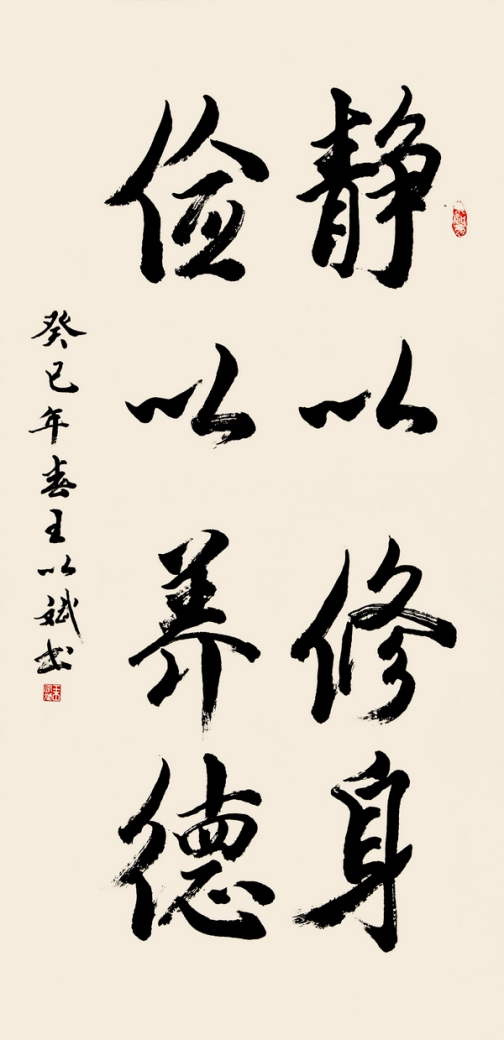 静以修身
俭以养德
癸巳年春王以斌书